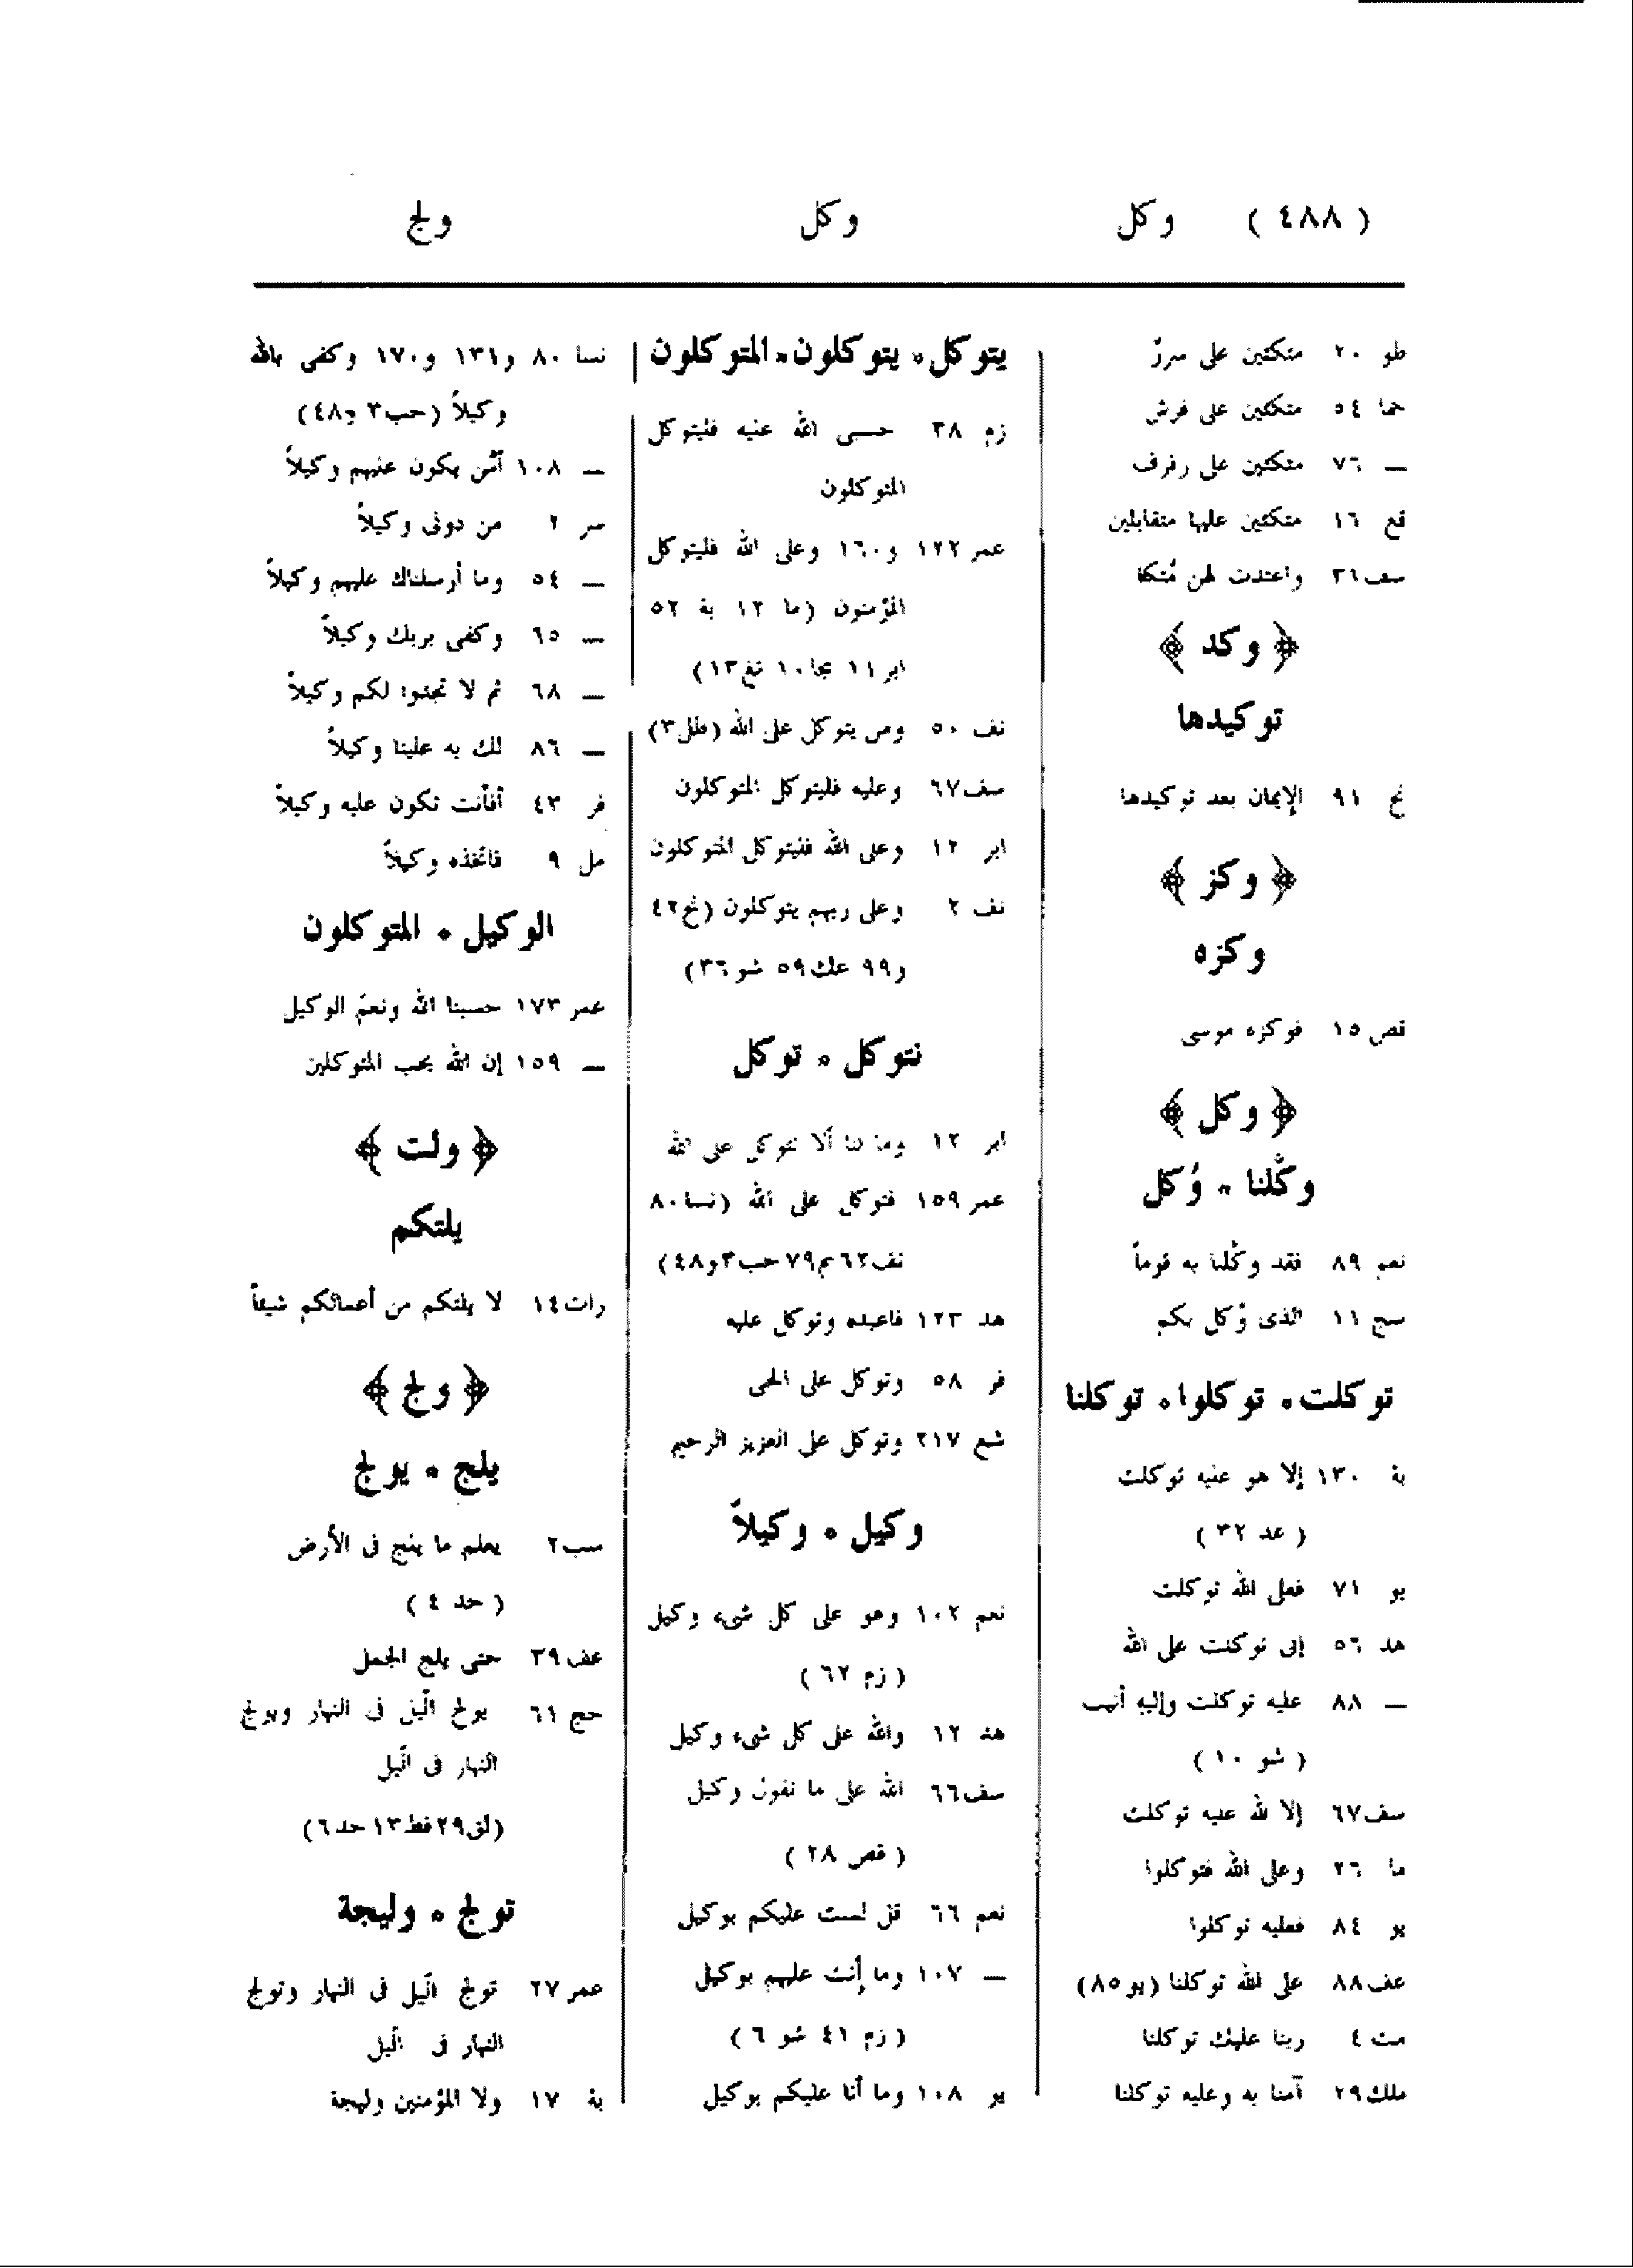 ( ٤٨٨ ) وكل وكل ولج
طو ٢٠ متكئين على سرر
حما ٥٤ متكئين على فرش
ــ ٧٦ متكئين على رفرف
قع ١٦ متكئين عليها متقابلين
سف ٣١ واعتدت لهن مُتكا
﴿ وكد ﴾
توكيدها
نح ٩١ الإيمان بعد توكيدها
﴿ وكز ﴾
وكزه
قص ١٥ فوكزه موسى
﴿ وكل ﴾
وكّلنا * وُكل
نعم ٨٩ فقد وكّلنا به قوماً
سج ١١ الذى وُكل بكم
توكلت * توكلوا * توكلنا
بة ١٣٠ إلا هو عليه توكلت
( عد ٣٢ )
يو ٧١ فعلى الله توكلت
هد ٥٦ إنى توكلت على الله
ــ ٨٨ عليه توكلت وإليه أنيب
( شو ١٠ )
سف ٦٧ إلا لله عليه توكلت
ما ٢٦ وعلى الله فتوكلوا
يو ٨٤ فعليه توكلوا
عف ٨٨ على الله توكلنا (يو ٨٥)
مت ٤ ربنا عليك توكلنا
ملك ٢٩ آمنا به وعليه توكلنا
يتوكل * يتوكلون * المتوكلون
زم ٣٨ حسبى الله عليه فليتوكل
المتوكلون
عمر ١٢٢ و١٦٠ وعلى الله فليتوكل
المؤمنون (ما ١٢ بة ٥٢
ابر ١١ مجا ١٠ تغ ١٣)
نف ٥٠ ومن يتوكل على الله (طل ٣)
سف ٦٧ وعليه فليتوكل المتوكلون
ابر ١٢ وعلى الله فليتوكل المتوكلون
نف ٢ وعلى ربهم يتوكلون (نح ٤٢
و٩٩ عك ٥٩ شو ٣٦)
نتوكل * توكل
ابر ١٢ وما لنا ألا نتوكل على الله
عمر ١٥٩ فتوكل على الله (نسا ٨٠
نف ٦٢ م ٧٩ حب ٣ و٤٨)
هد ١٢٣ فاعبده وتوكل عليه
فر ٥٨ وتوكل على الحى
شع ٢١٧ وتوكل على العزيز الرحيم
وكيل * وكيلاً
نعم ١٠٢ وهو على كل شىء وكيل
( زم ٦٢ )
هد ١٢ والله على كل شىء وكيل
سف ٦٦ الله على ما نقول وكيل
( قص ٢٨ )
نعم ٦٦ قل لست عليكم بوكيل
ــ ١٠٧ وما أنت عليهم بوكيل
( زم ٤١ شو ٦ )
يو ١٠٨ وما أنا عليكم بوكيل
نسا ٨٠ و١٣١ و١٧٠ وكفى بالله
وكيلاً (حب ٣ و٤٨)
ــ ١٠٨ أمّن يكون عليهم وكيلاً
سر ٢ من دونى وكيلاً
ــ ٥٤ وما أرسلناك عليهم وكيلاً
ــ ٦٥ وكفى بربك وكيلاً
ــ ٦٨ ثم لا تجدوا لكم وكيلاً
ــ ٨٦ لك به علينا وكيلاً
فر ٤٣ أفأنت تكون عليه وكيلاً
مل ٩ فاتخذه وكيلاً
الوكيل * المتوكلون
عمر ١٧٣ حسبنا الله ونعم الوكيل
ــ ١٥٩ إن الله يحب المتوكلين
﴿ ولت ﴾
يلتكم
رات ١٤ لا يلتكم من أعمالكم شيئاً
﴿ ولج ﴾
يلج * يولج
سب ٢ يعلم ما يلج فى الأرض
( حد ٤ )
عف ٣٩ حتى يلج الجمل
حج ٦١ يولج الّيل فى النهار ويولج
النهار فى الّيل
(لق ٢٩ فط ١٣ حد ٦)
تولج * وليجة
عمر ٢٧ تولج الّيل فى النهار وتولج
النهار فى الّيل
بة ١٧ ولا المؤمنين وليجة